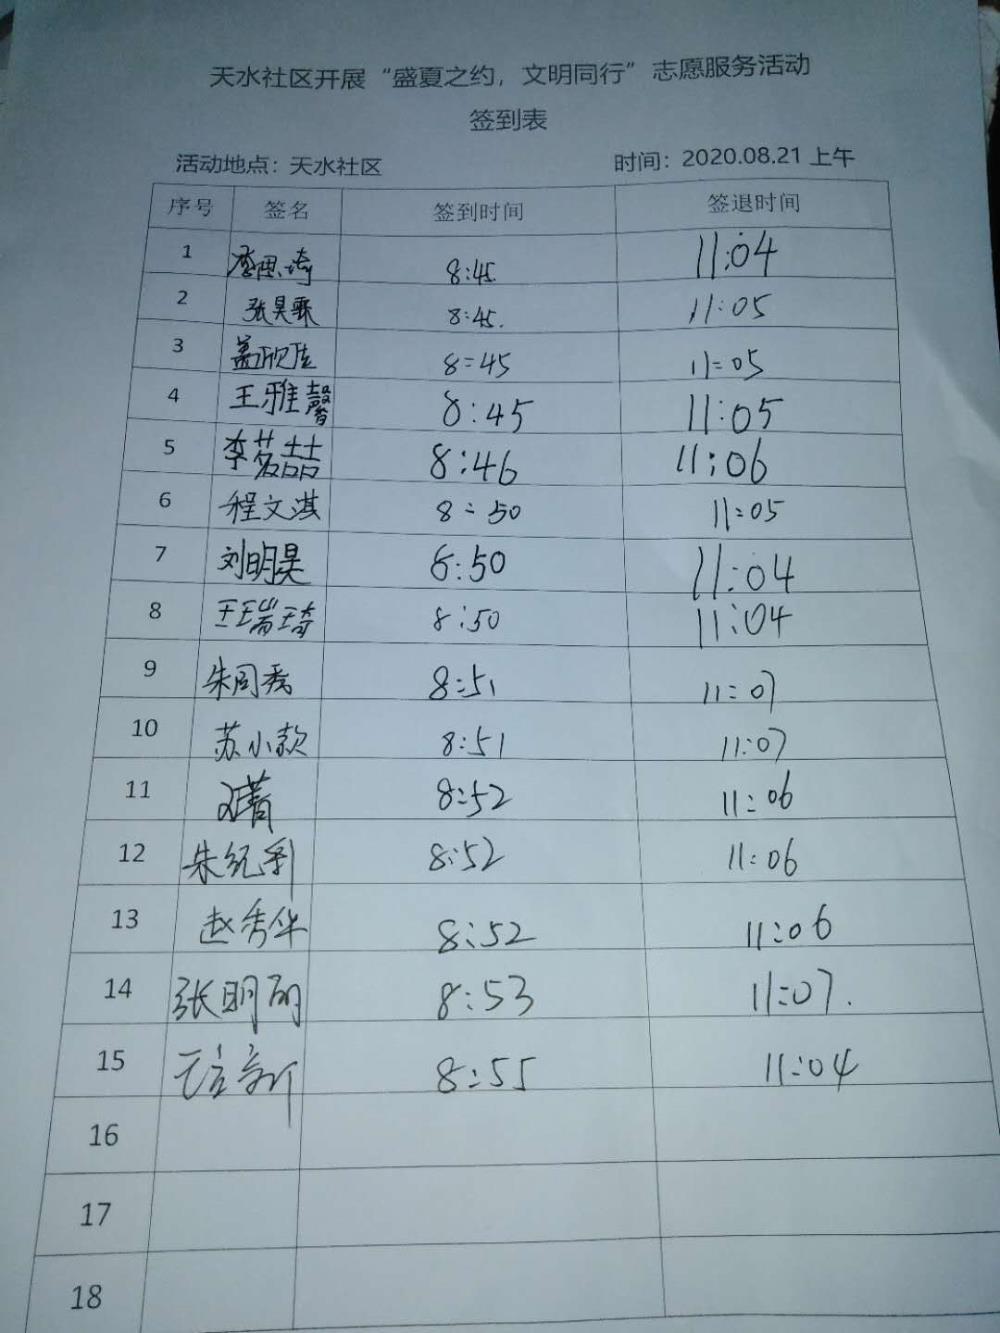 天水社区开展“盛夏之约，文明同行”志愿服务活动
签到表
活动地点：天水社区 时间：2020.08.21 上午
序号 签名 签到时间 签退时间
1 李思琦 8:45 11:04
2 张昊霖 8:45. 11:05
3 盖欣佳 8:45 11:05
4 王雅馨 8:45 11:05
5 李茗喆 8:46 11:06
6 程文淇 8:50 11:05
7 刘明昊 8:50 11:04
8 王瑞琦 8:50 11:04
9 朱同秀 8:51 11:07
10 苏小款 8:51 11:07
11 8:52 11:06
12 朱纪利 8:52 11:06
13 赵秀华 8:52 11:06
14 张明丽 8:53 11:07.
15 8:55 11:04
16
17
18